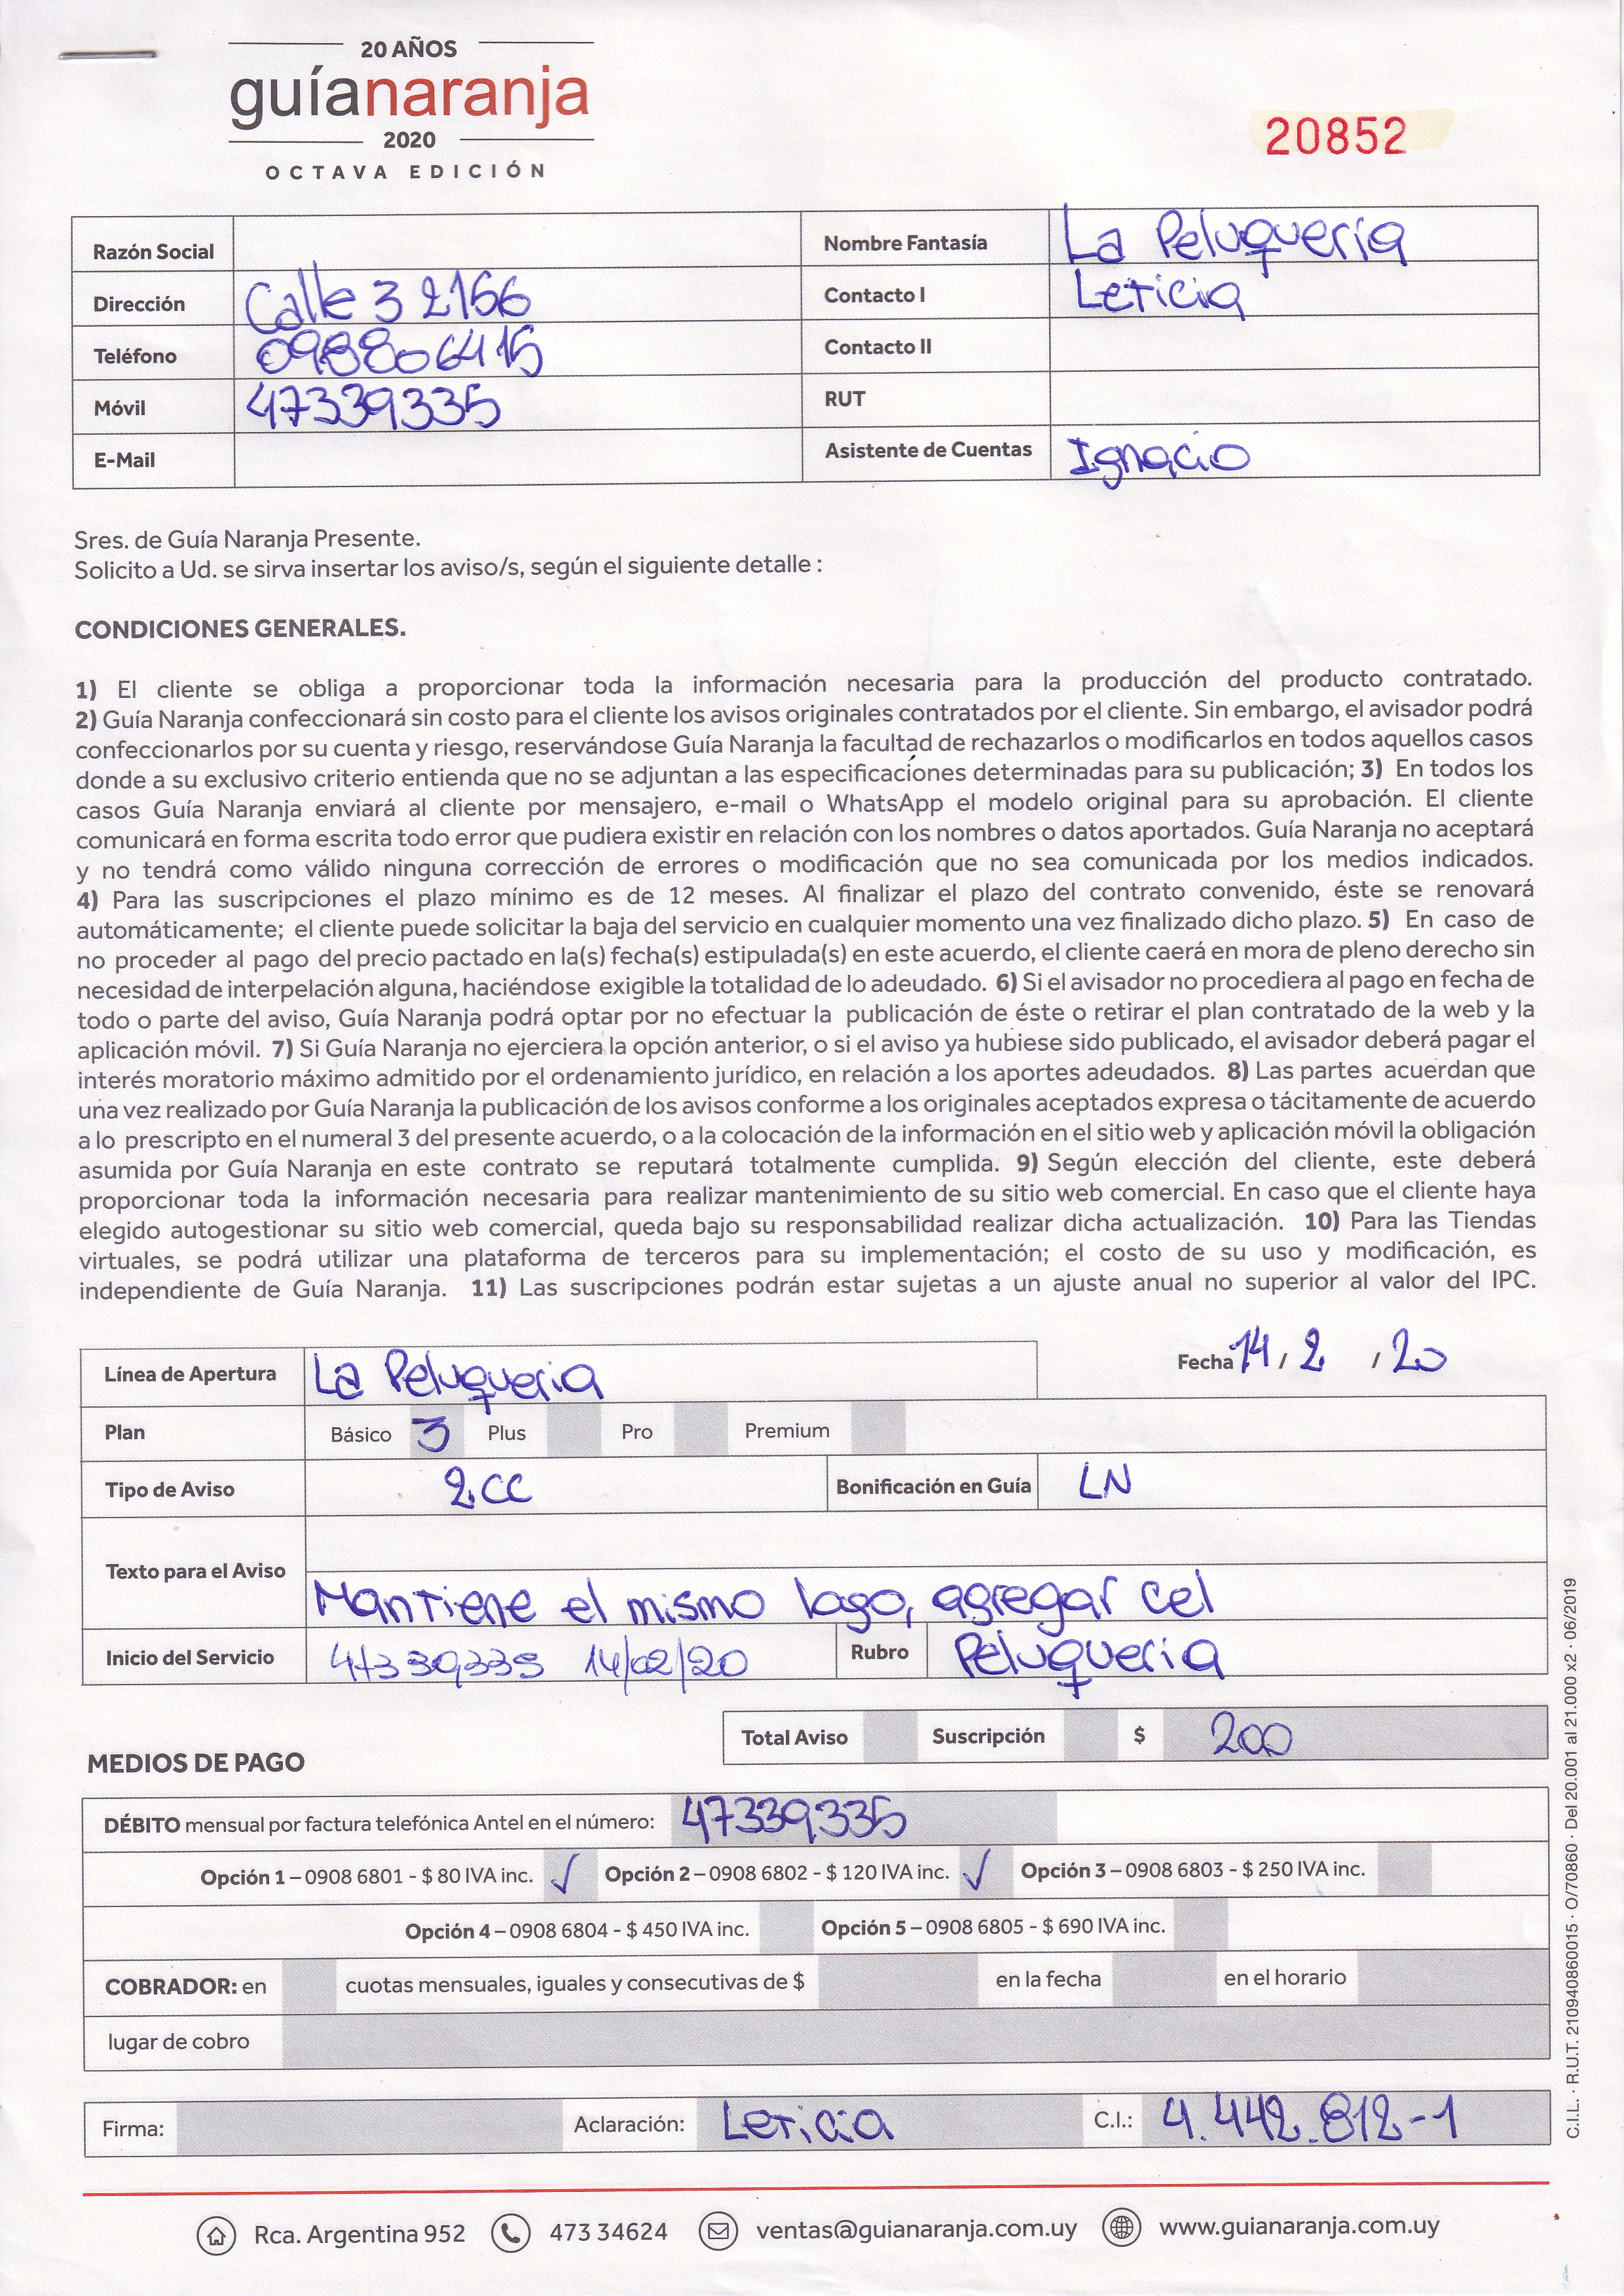 20 AÑOS
guíanaranja
2020
OCTAVA EDICIÓN
20852
Razón Social
Nombre Fantasía La Peluqueria
Dirección Calle 3 2156
Contacto I Leticia
Teléfono 098806415
Contacto II
Móvil 47339335
RUT
E-Mail
Asistente de Cuentas Ignacio
Sres. de Guía Naranja Presente.
Solicito a Ud. se sirva insertar los aviso/s, según el siguiente detalle :
CONDICIONES GENERALES.
1) El cliente se obliga a proporcionar toda la información necesaria para la producción del producto contratado.
2) Guía Naranja confeccionará sin costo para el cliente los avisos originales contratados por el cliente. Sin embargo, el avisador podrá
confeccionarlos por su cuenta y riesgo, reservándose Guía Naranja la facultad de rechazarlos o modificarlos en todos aquellos casos
donde a su exclusivo criterio entienda que no se adjuntan a las especificaciones determinadas para su publicación; 3) En todos los
casos Guía Naranja enviará al cliente por mensajero, e-mail o WhatsApp el modelo original para su aprobación. El cliente
comunicará en forma escrita todo error que pudiera existir en relación con los nombres o datos aportados. Guía Naranja no aceptará
y no tendrá como válido ninguna corrección de errores o modificación que no sea comunicada por los medios indicados.
4) Para las suscripciones el plazo mínimo es de 12 meses. Al finalizar el plazo del contrato convenido, éste se renovará
automáticamente; el cliente puede solicitar la baja del servicio en cualquier momento una vez finalizado dicho plazo. 5) En caso de
no proceder al pago del precio pactado en la(s) fecha(s) estipulada(s) en este acuerdo, el cliente caerá en mora de pleno derecho sin
necesidad de interpelación alguna, haciéndose exigible la totalidad de lo adeudado. 6) Si el avisador no procediera al pago en fecha de
todo o parte del aviso, Guía Naranja podrá optar por no efectuar la publicación de éste o retirar el plan contratado de la web y la
aplicación móvil. 7) Si Guía Naranja no ejerciera la opción anterior, o si el aviso ya hubiese sido publicado, el avisador deberá pagar el
interés moratorio máximo admitido por el ordenamiento jurídico, en relación a los aportes adeudados. 8) Las partes acuerdan que
una vez realizado por Guía Naranja la publicación de los avisos conforme a los originales aceptados expresa o tácitamente de acuerdo
a lo prescripto en el numeral 3 del presente acuerdo, o a la colocación de la información en el sitio web y aplicación móvil la obligación
asumida por Guía Naranja en este contrato se reputará totalmente cumplida. 9) Según elección del cliente, este deberá
proporcionar toda la información necesaria para realizar mantenimiento de su sitio web comercial. En caso que el cliente haya
elegido autogestionar su sitio web comercial, queda bajo su responsabilidad realizar dicha actualización. 10) Para las Tiendas
virtuales, se podrá utilizar una plataforma de terceros para su implementación; el costo de su uso y modificación, es
independiente de Guía Naranja. 11) Las suscripciones podrán estar sujetas a un ajuste anual no superior al valor del IPC.
Línea de Apertura La Peluqueria
Fecha 14 / 2 / 20
Plan Básico 3 Plus Pro Premium
Tipo de Aviso 2CC Bonificación en Guía LN
Texto para el Aviso
Mantiene el mismo logo, agregar cel
Inicio del Servicio 47339335 14/02/20 Rubro Peluqueria
Total Aviso Suscripción $ 200
MEDIOS DE PAGO
DÉBITO mensual por factura telefónica Antel en el número: 47339335
Opción 1 – 0908 6801 - $ 80 IVA inc. ✓ Opción 2 – 0908 6802 - $ 120 IVA inc. ✓ Opción 3 – 0908 6803 - $ 250 IVA inc.
Opción 4 – 0908 6804 - $ 450 IVA inc. Opción 5 – 0908 6805 - $ 690 IVA inc.
COBRADOR: en cuotas mensuales, iguales y consecutivas de $ en la fecha en el horario
lugar de cobro
Firma: Aclaración: Leticia C.I.: 4.442.812-1
Rca. Argentina 952 473 34624 ventas@guianaranja.com.uy www.guianaranja.com.uy
C.I.L. · R.U.T. 210940860015 · O/70860 · Del 20.001 al 21.000 x2 · 06/2019